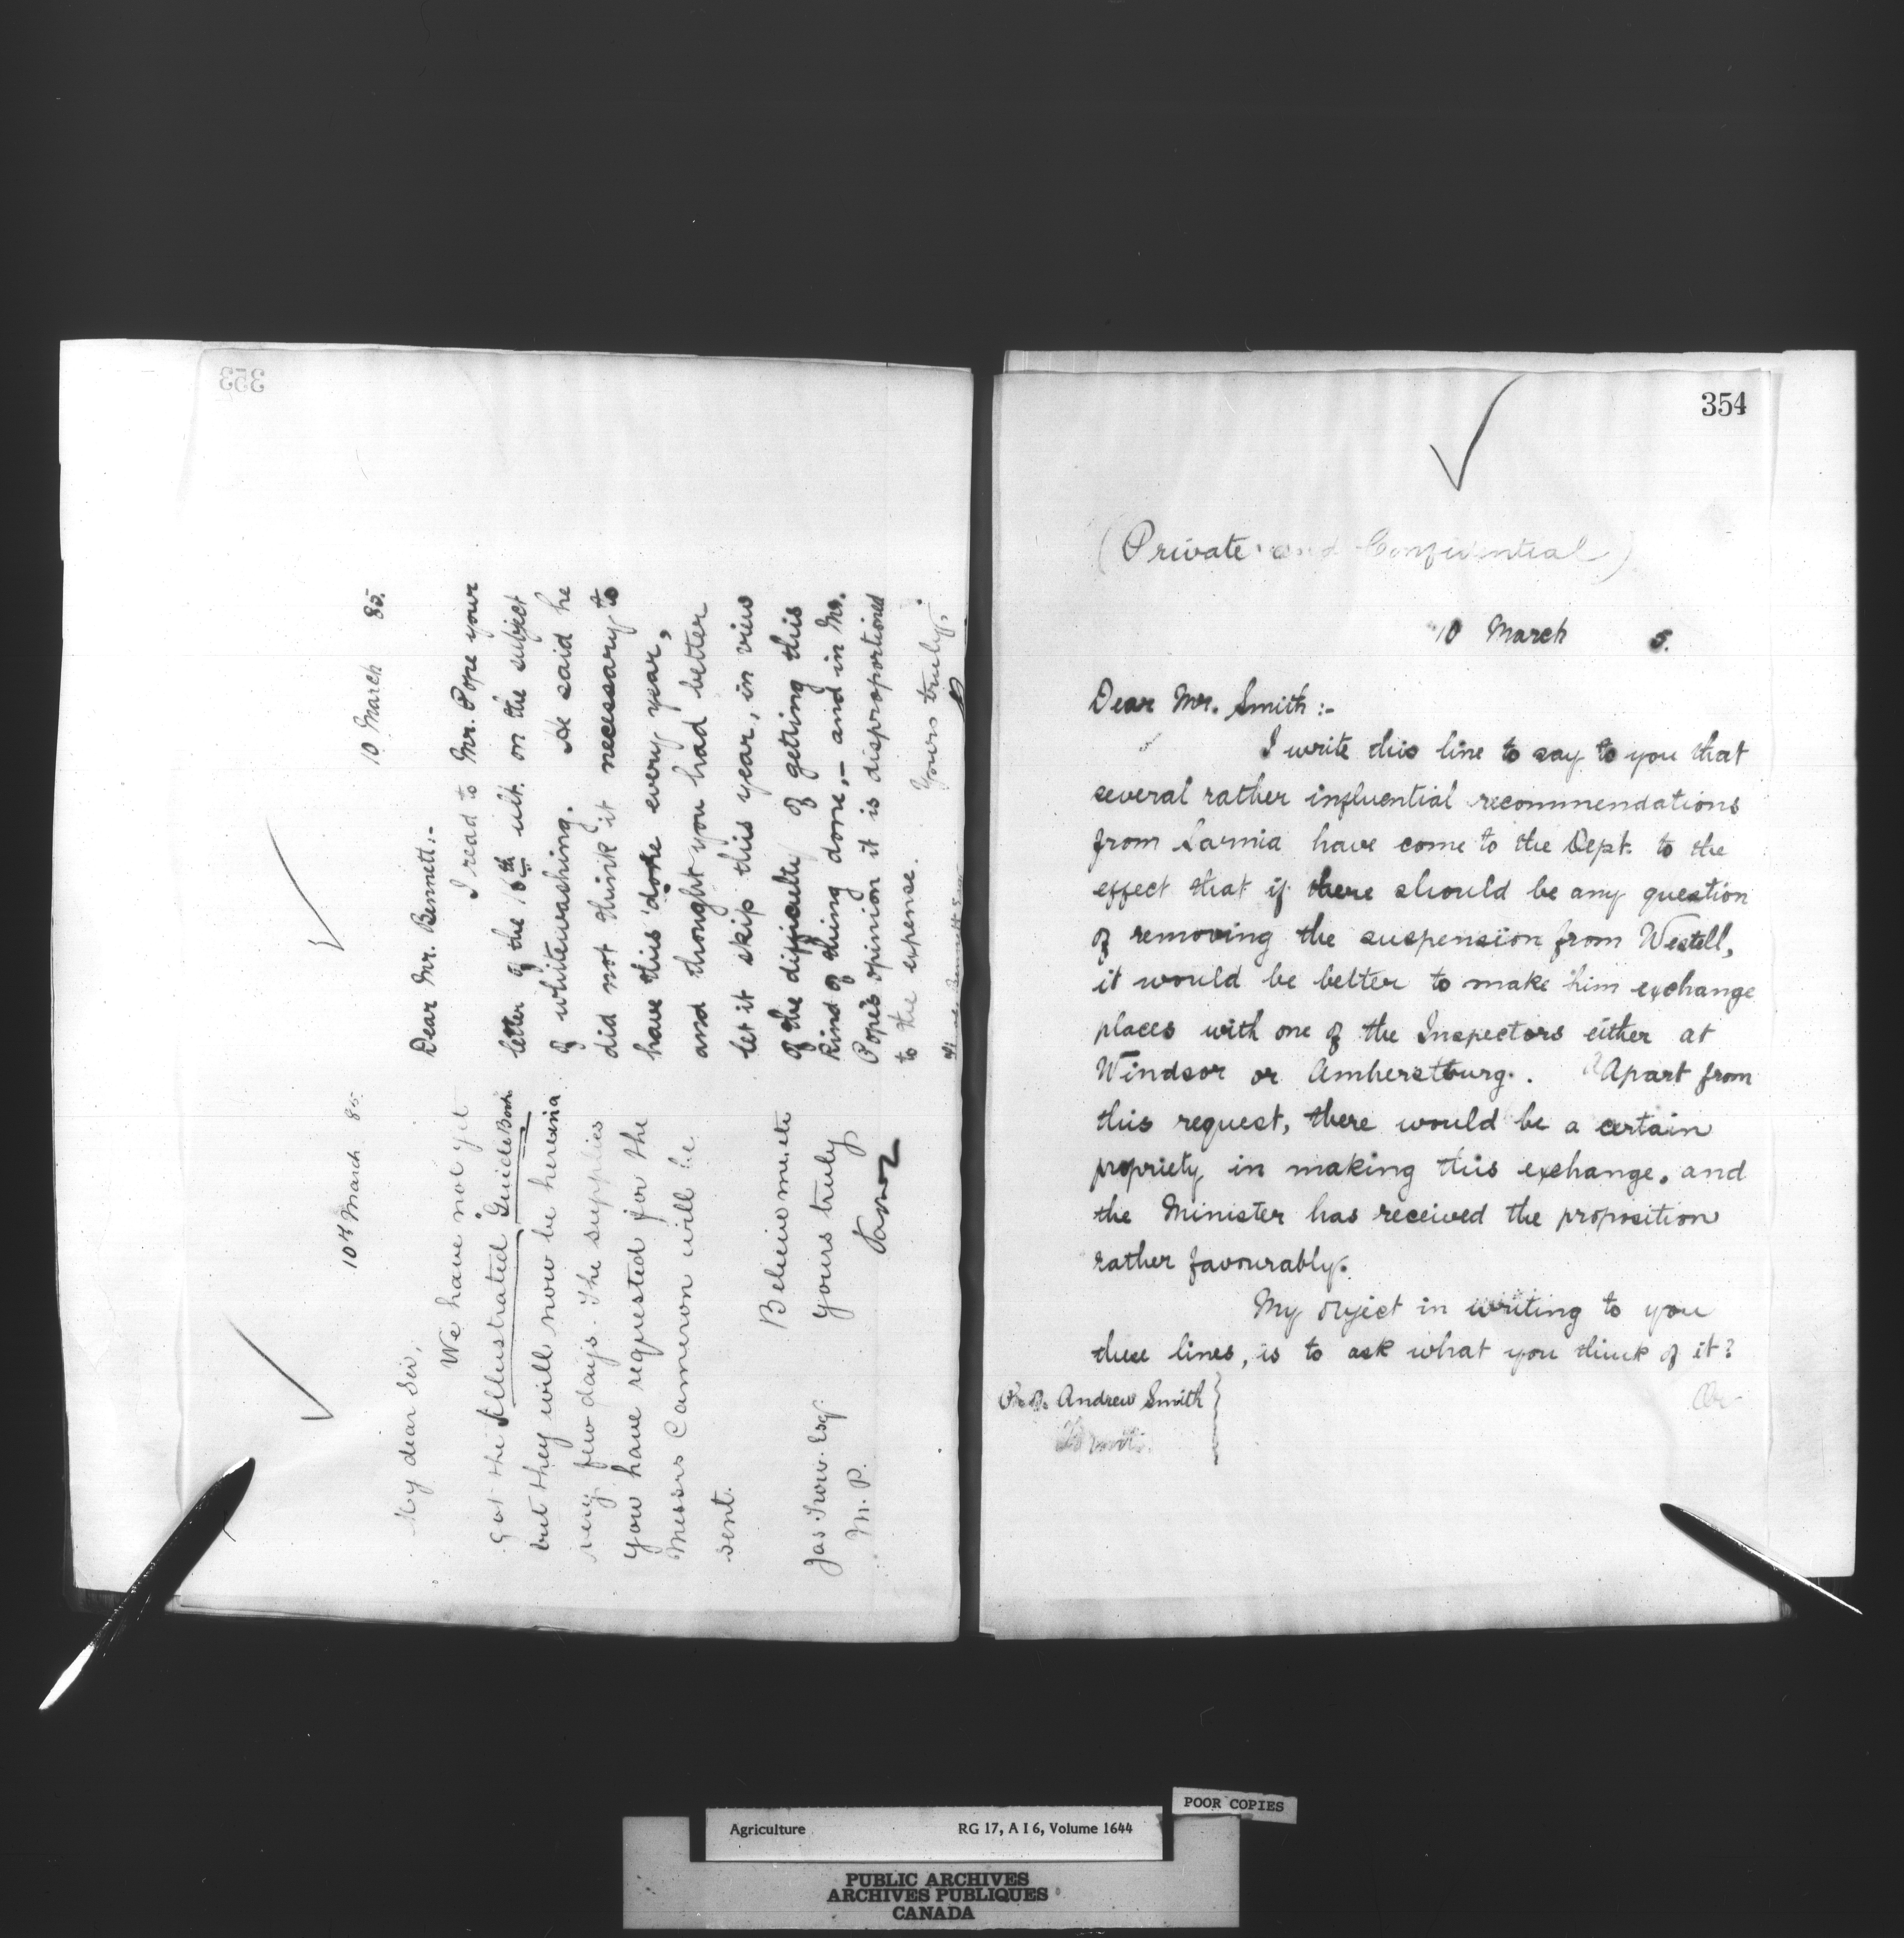 353
10th March 85.
My dear Sir,
We have not yet
got the Illustrated Guide Book
but they will now be here in a
very few days. The supplies
you have requested for the
Messrs Cameron will be
sent.
Believe me etc
Yours truly
Jas Trow. Esq.
M. P.
10 March 85.
Dear Mr. Bennett:-
I read to Mr. Pope your
letter of the 16th ult. on the subject
of whitewashing. He said he
did not think it necessary to
have this done every year,
and thought you had better
let it skip this year, in view
of the difficulty of getting this
kind of thing done,- and in Mr.
Pope's opinion it is disproportioned
to the expense.
Yours truly,
354
(Private and Confidential)
10 March 5.
Dear Mr. Smith:-
I write this line to say to you that
several rather influential recommendations
from Sarnia have come to the Dept. to the
effect that if there should be any question
of removing the suspension from Westell,
it would be better to make him exchange
places with one of the Inspectors either at
Windsor or Amherstburg. Apart from
this request, there would be a certain
propriety in making this exchange, and
the Minister has received the proposition
rather favourably.
My object in writing to you
these lines, is to ask what you think of it?
Andrew Smith
POOR COPIES
Agriculture RG 17, A I 6, Volume 1644
PUBLIC ARCHIVES
ARCHIVES PUBLIQUES
CANADA